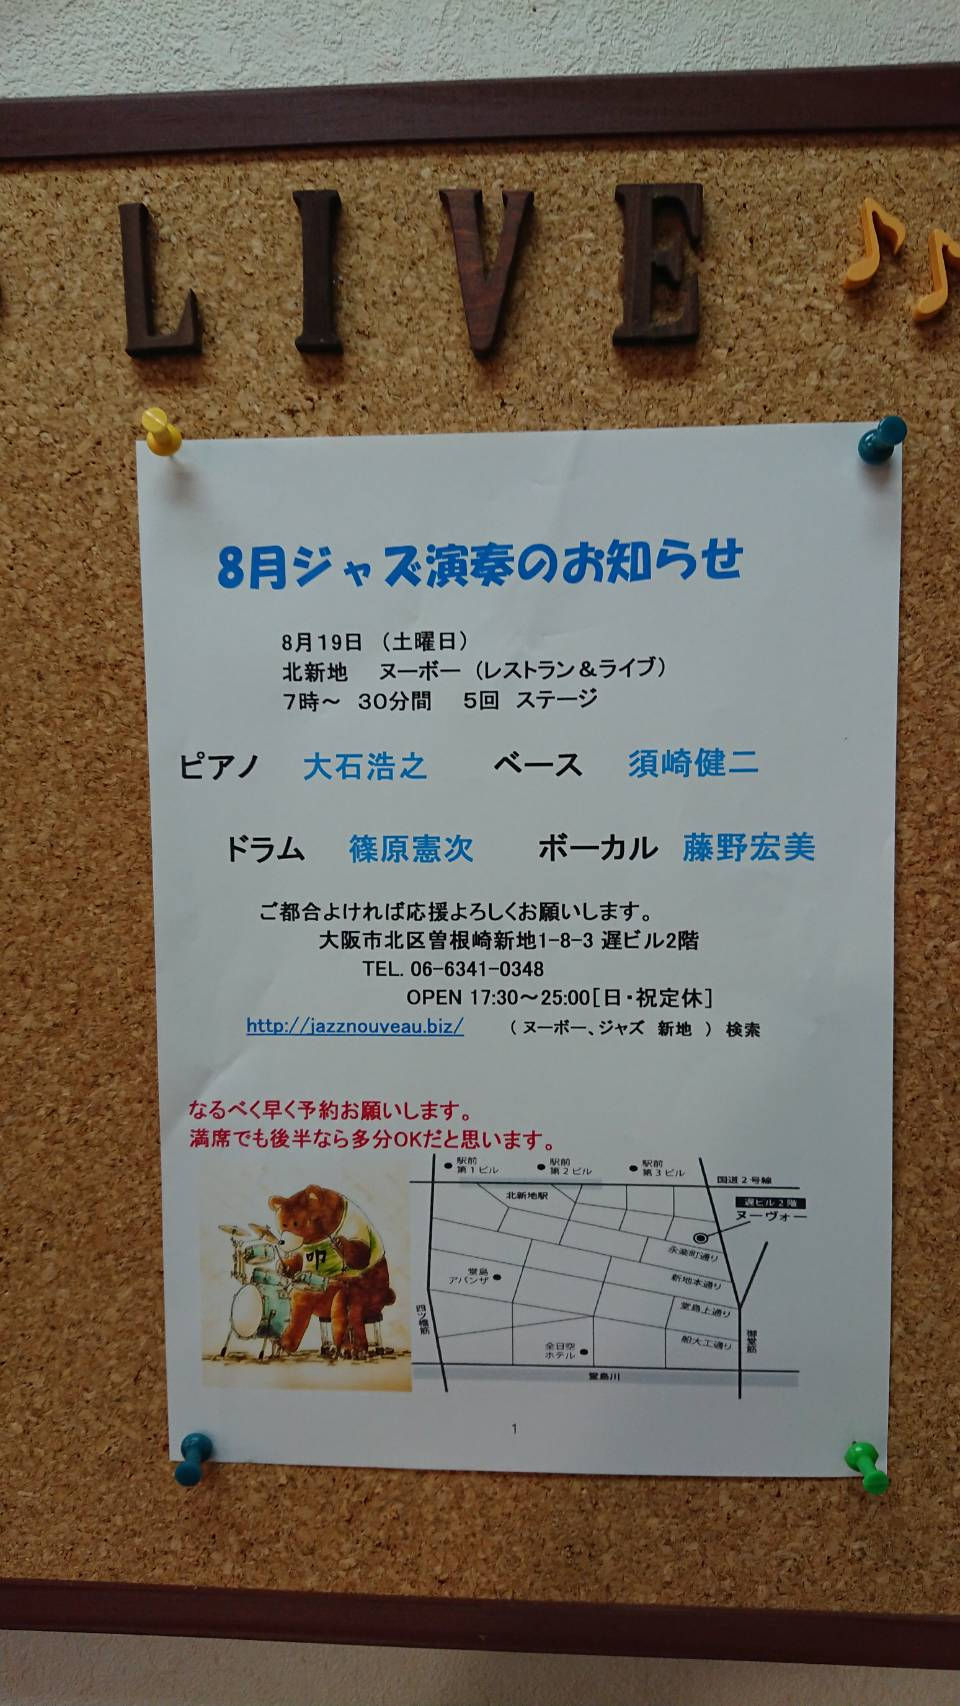 LIVE
8月ジャズ演奏のお知らせ
8月19日 (土曜日)
北新地 ヌーボー (レストラン&ライブ)
7時~ 30分間 5回 ステージ
ピアノ 大石浩之 ベース 須崎健二
ドラム 篠原憲次 ボーカル 藤野宏美
ご都合よければ応援よろしくお願いします。
大阪市北区曽根崎新地1-8-3 遅ビル2階
TEL. 06-6341-0348
OPEN 17:30~25:00[日・祝定休]
http://jazznouveau.biz/ ( ヌーボー、ジャズ 新地 ) 検索
なるべく早く予約お願いします。
満席でも後半なら多分OKだと思います。
駅前
第1ビル
駅前
第2ビル
駅前
第3ビル
国道2号線
北新地駅
遅ビル2階
ヌーヴォー
永楽町通り
新地本通り
堂島
アバンザ
堂島上通り
四ツ橋筋
御堂筋
船大工通り
全日空
ホテル
堂島川
叩
1